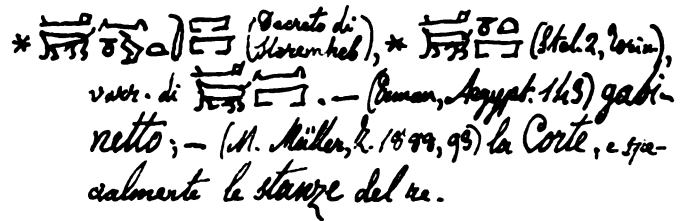 * (Decreto di Horemheb), * (Stel. 2, Torin),
varr. di . — (Erman, Aegypt. 143) gabi-
netto; — (M. Müller, Z. 1888, 93) la Corte, e spe-
cialmente le stanze del re.